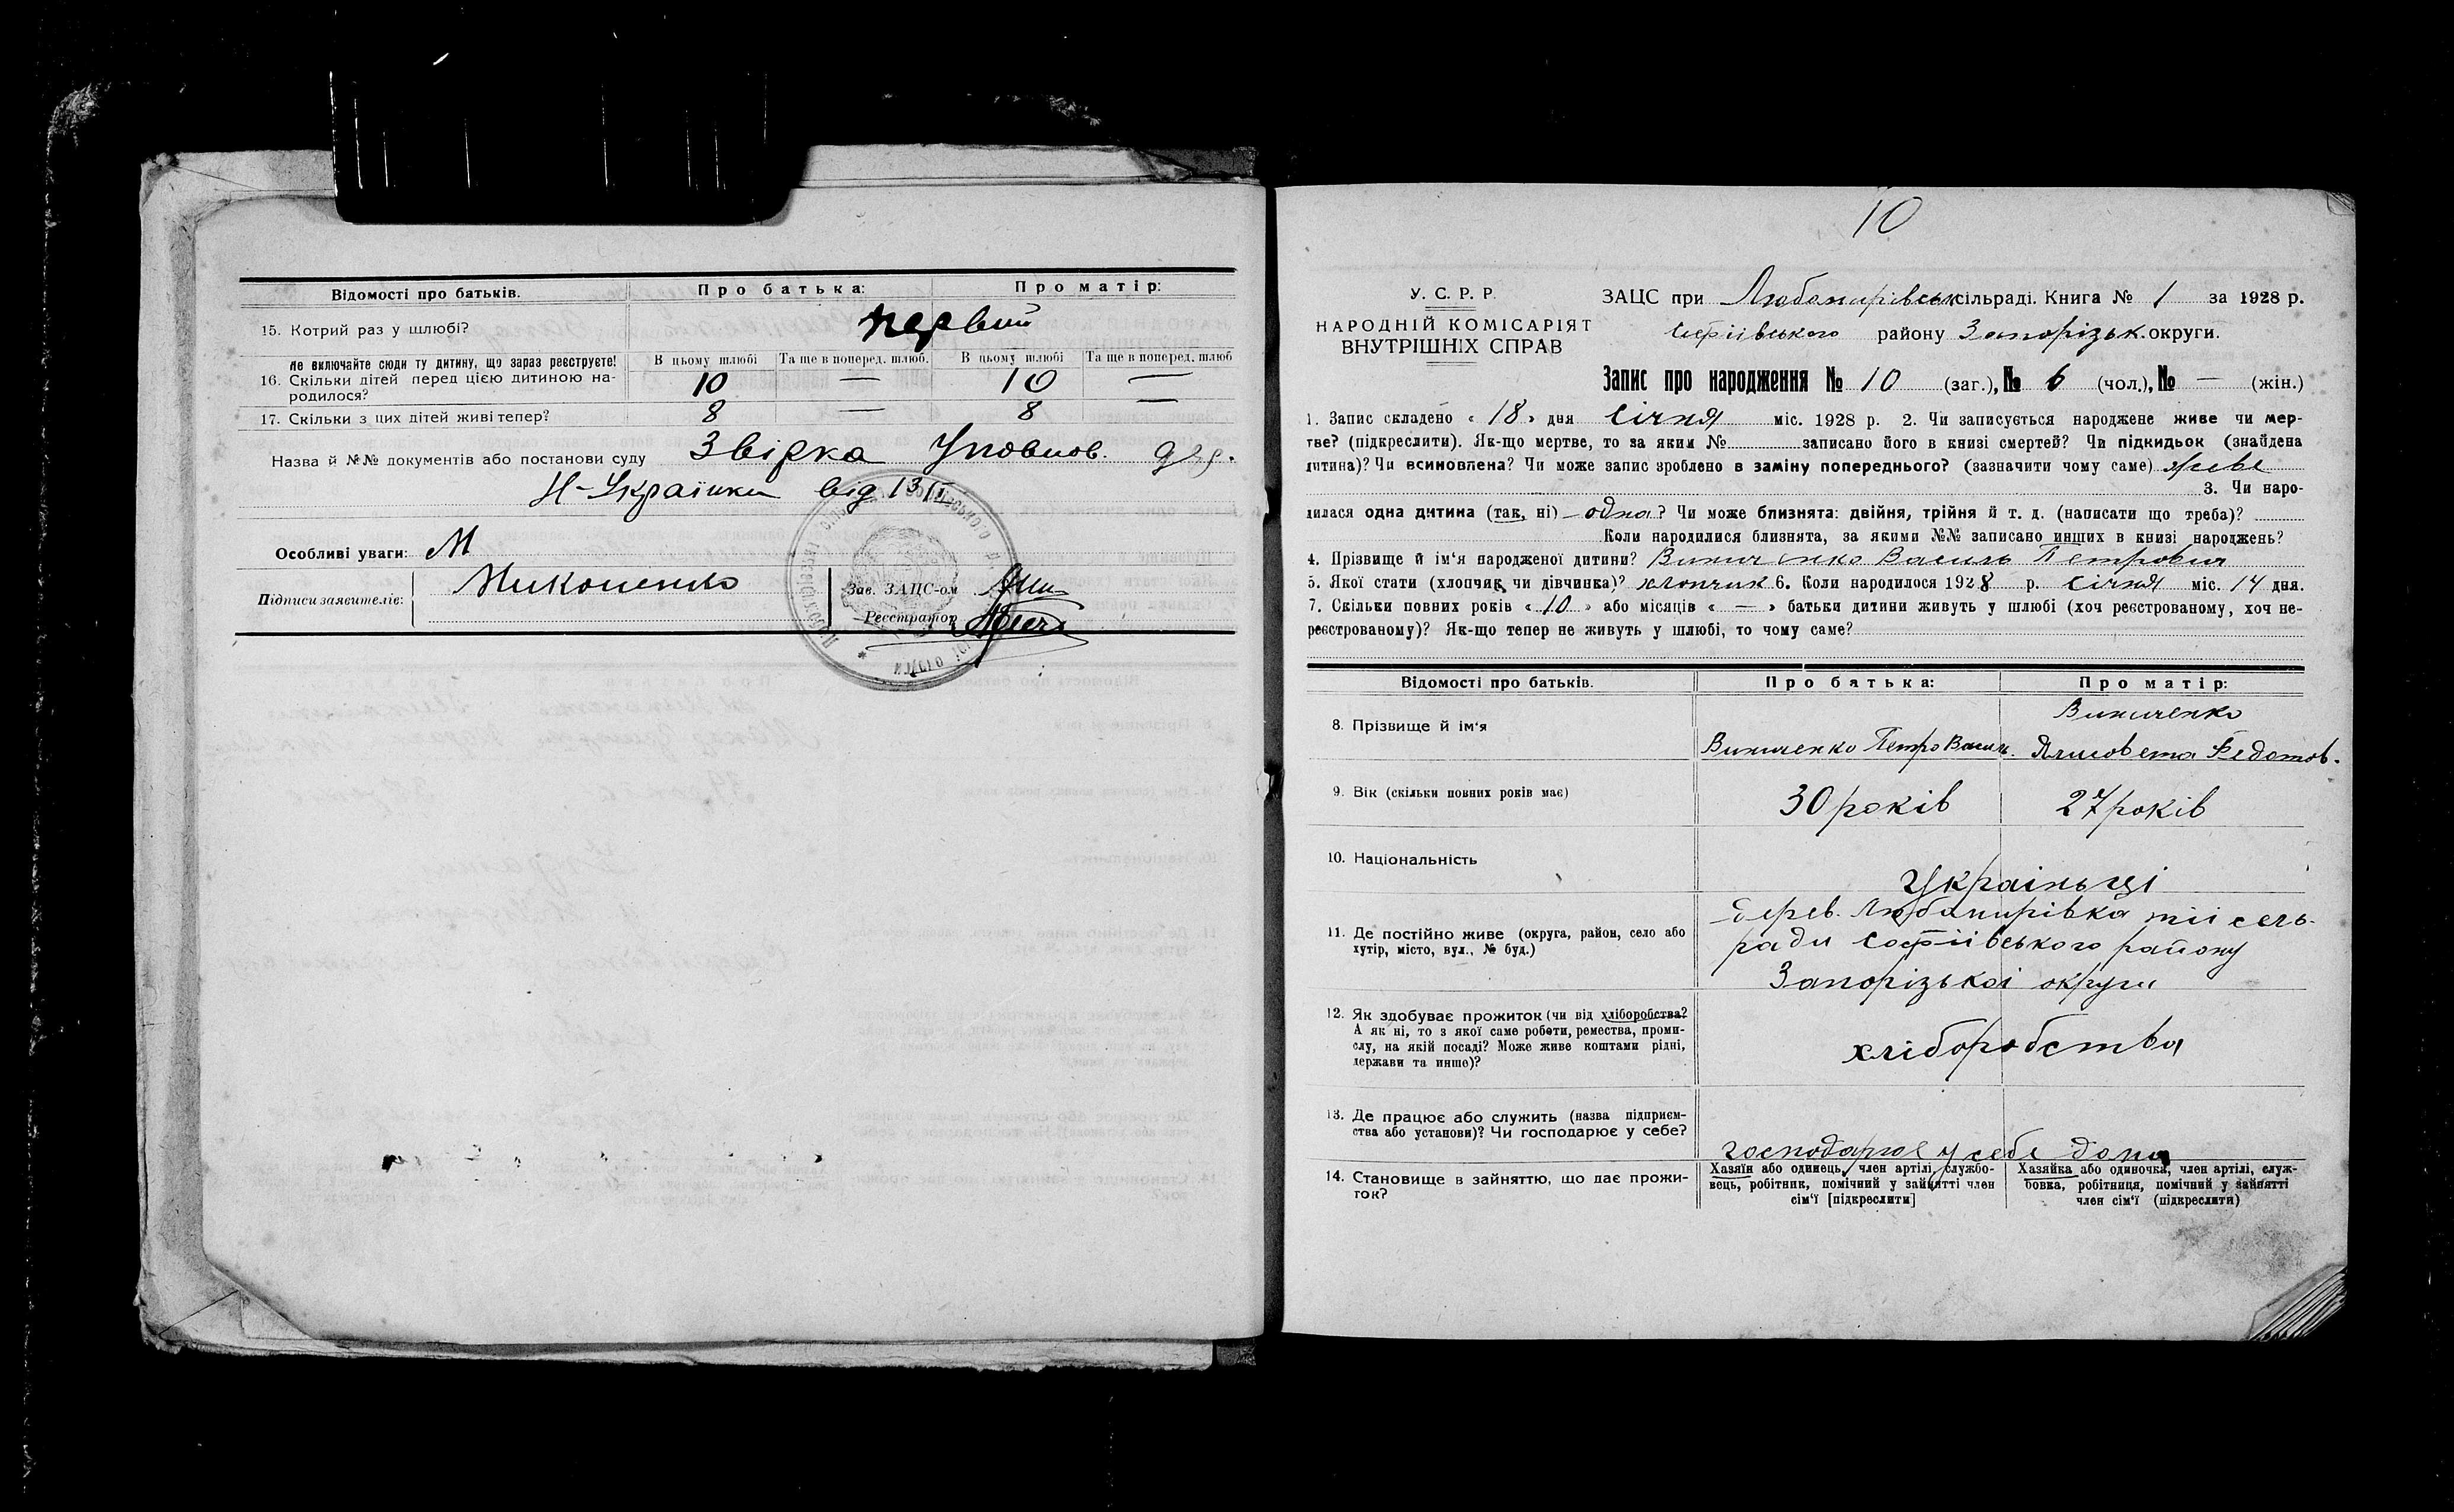 Відомості про батьків. Про батька: Про матір:
15. Котрий раз у шлюбі? первий
Не включайте сюди ту дитину, що зараз реєструєте! В цьому шлюбі Та ще в поперед. шлюб. В цьому шлюбі Та ще в поперед. шлюб
16. Скільки дітей перед цією дитиною на- 10 — 10 —
родилося?
17. Скільки з цих дітей живі тепер? 8 — 8 —
Назва й №№ документів або постанови суду Звірка Уповнов. дер.
Н-Українки від 13/I
Особливі уваги: М
Підписи заявителів: Никоненко Зав. ЗАЦС-ом
Реєстратор
10
У. С. Р. Р.
НАРОДНІЙ КОМІСАРІЯТ
ВНУТРІШНІХ СПРАВ
ЗАЦС при Любомирівськ сільраді. Книга № 1 за 1928 р.
Софіївського району Запорізьк. округи.
Запис про народження № 10 (заг.), № 6 (чол.), № — (жін.)
1. Запис складено « 18 » дня січня міс. 1928 р. 2. Чи записується народжене живе чи мер-
тве? (підкреслити). Як-що мертве, то за яким № записано його в книзі смертей? Чи підкидьок (знайдена
дитина)? Чи всиновлена? Чи може запис зроблено в заміну попереднього? (зазначити чому саме) живе
3. Чи наро-
дилася одна дитина (так, ні) — одна? Чи може близнята: двійня, трійня й т. д. (написати що треба)?
Коли народилися близнята, за якими №№ записано инших в книзі народжень?
4. Прізвище й ім'я народженої дитини? Виниченко Василь Петрович
5. Якої стати (хлопчик чи дівчинка)? хлопчик 6. Коли народилося 1928 р. січня міс. 14 дня.
7. Скільки повних років « 10 » або місяців « — » батьки дитини живуть у шлюбі (хоч реєстрованому, хоч не-
реєстрованому)? Як-що тепер не живуть у шлюбі, то чому саме?
Відомості про батьків. Про батька: Про матір:
8. Прізвище й ім'я Виниченко
Виниченко Петро Васил. Ялисовета Федотов.
9. Вік (скільки повних років має) 30 років 27 років
10. Національність
Україньці
Дерев. Любомирівка тії сель-
11. Де постійно живе (округа, район, село або
хутір, місто, вул., № буд.)
ради Софіївського району
Запорізької округи
12. Як здобуває прожиток (чи від хліборобства?
А як ні, то з якої саме роботи, ремества, проми-
слу, на якій посаді? Може живе коштами рідні,
держави та инше)?
хліборобства
13. Де працює або служить (назва підприєм-
ства або установи)? Чи господарює у себе?
господарює у себе дома
14. Становище в зайняттю, що дає прожи-
ток?
Хазяїн або одинець, член артілі, службо-
вець, робітник, помічний у зайнятті член
сім'ї [підкреслити]
Хазяйка або одиночка, член артілі, служ-
бовка, робітниця, помічний у зайнятті
член сім'ї (підкреслити)